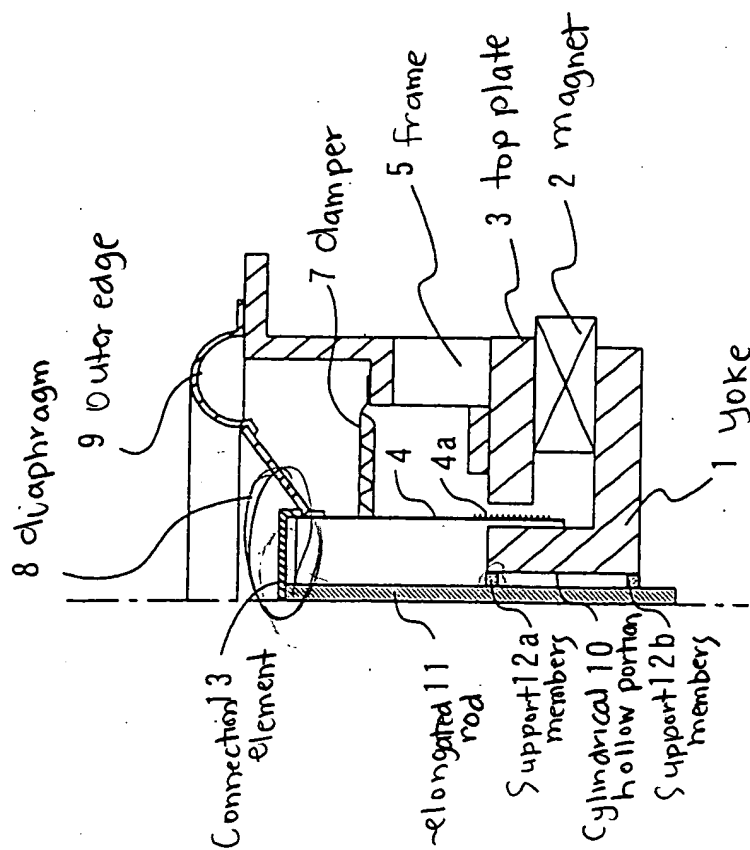 8 diaphragm
9 Outer edge
7 damper
5 frame
3 top plate
2 magnet
4
4a
1 yoke
Connection 13
element
elongated 11
rod
Support 12a
members
Cylindrical 10
hollow portion
Support 12b
members